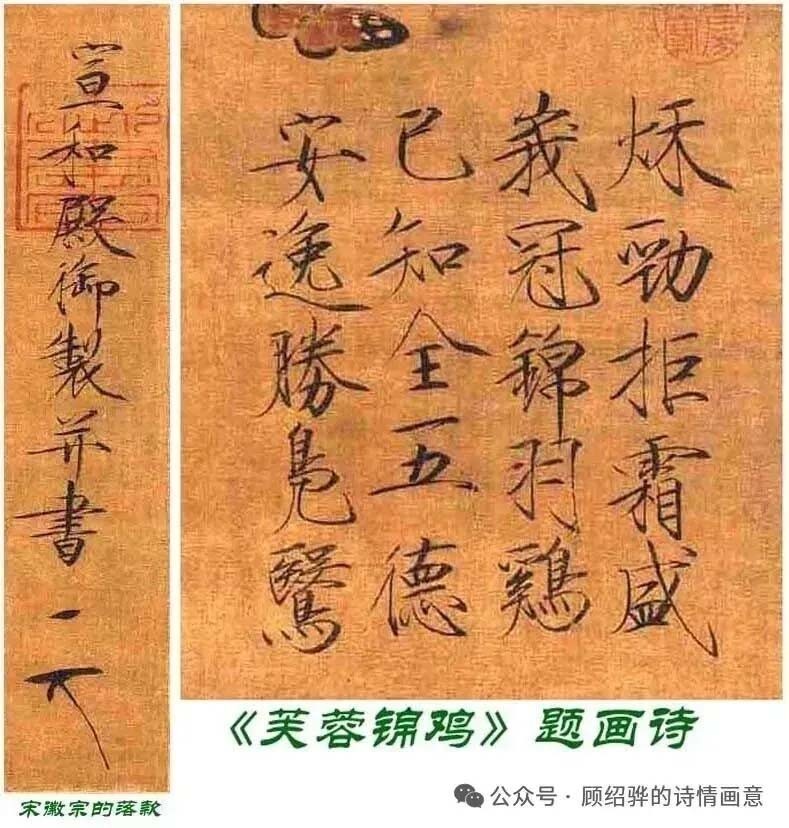 秌勁拒霜盛
峩冠錦羽鷄
已知全五德
安逸勝鳧鷖
宣和殿御製并書
《芙蓉锦鸡》题画诗
宋徽宗的落款
公众号·顾绍骅的诗情画意